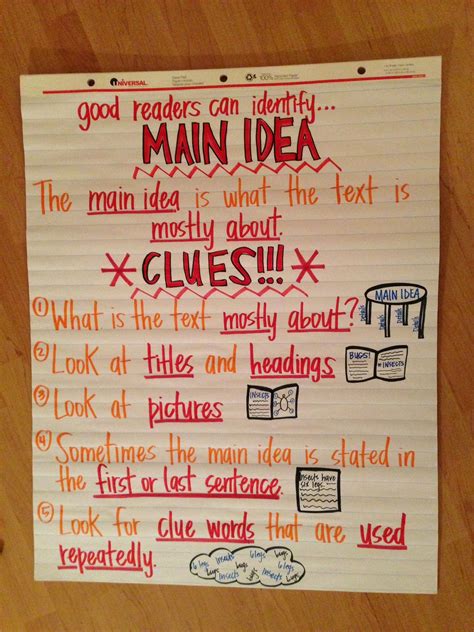 UNIVERSAL
100%
good readers can identify...
MAIN IDEA
The main idea is what the text is
mostly about.
* CLUES!!! *
① What is the text mostly about?
MAIN IDEA
details details details details
② Look at titles and headings
BUGS!
* INSECTS
③ Look at pictures
INSECTS
④ Sometimes the main idea is stated in
the first or last sentence.
insects have
six legs.
⑤ Look for clue words that are used
repeatedly.
6 legs insects 6 legs bugs
bugs bugs 6 legs
insects bugs insects bugs